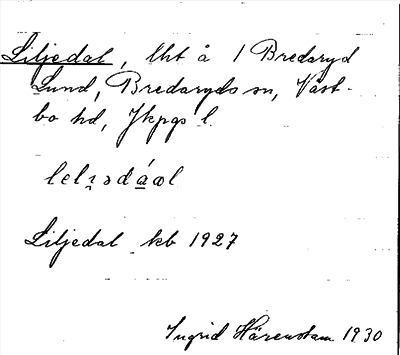 Liljedal, lht å 1 Bredaryd
Lund, Bredaryds sn, Väst-
bo hd, Jkpgs l.
Liljedal kb 1927
Ingrid Härenstam 1930